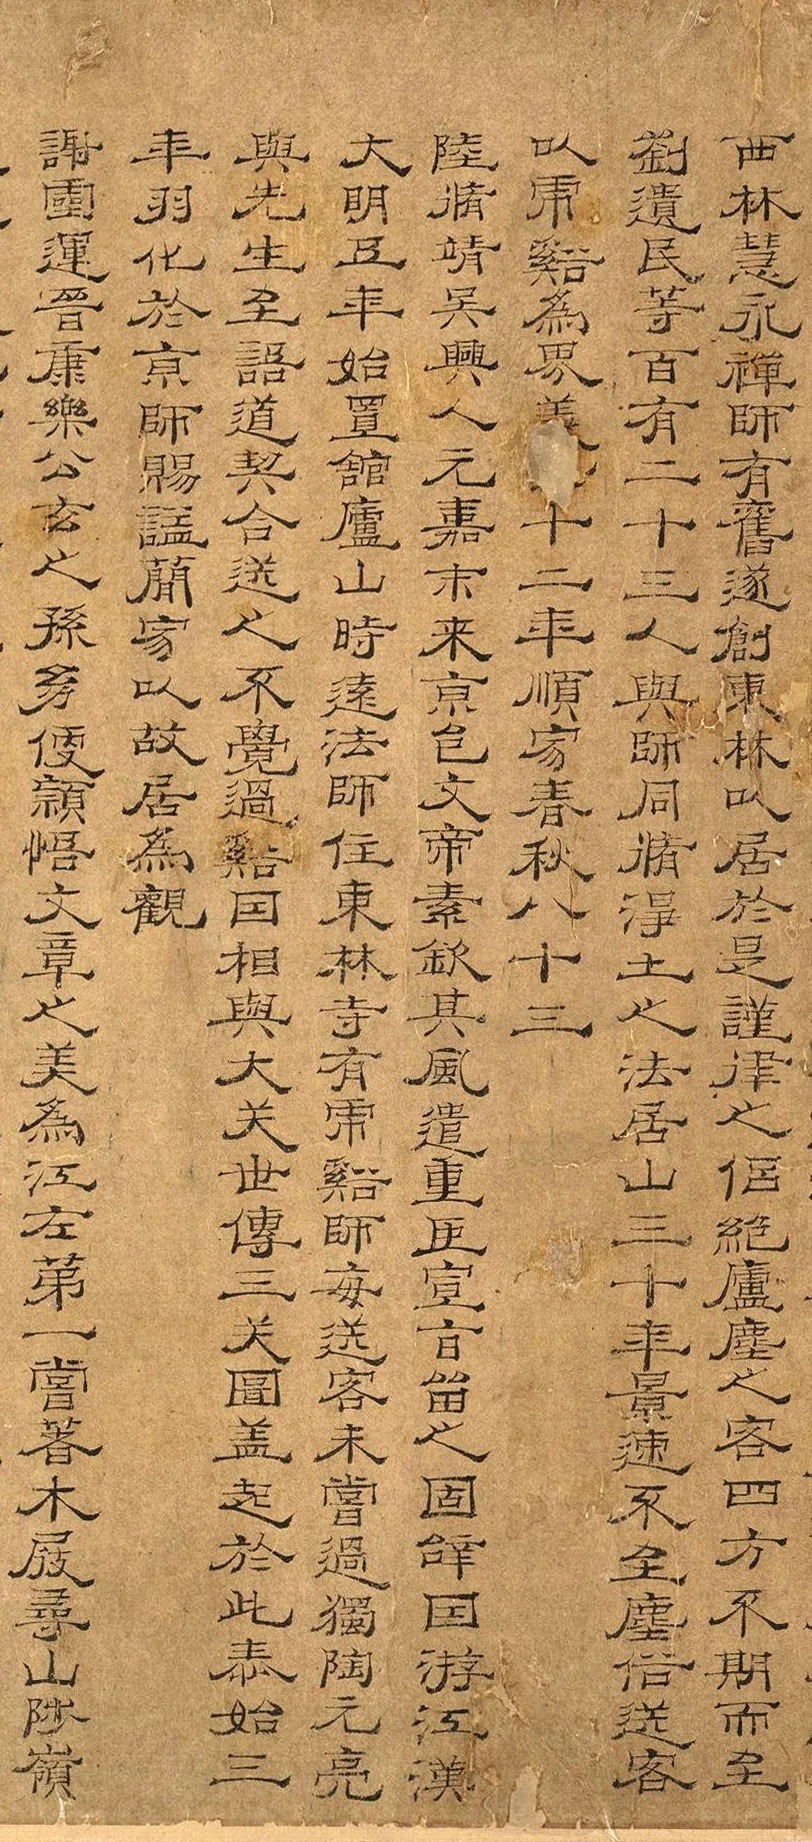 西林慧永禪師有舊遂創東林以居於是謹律之侶絕塵之客四方不期而至
劉遺民等百有二十三人與師同脩淨土之法居山三十年景迹不至塵俗送客
以虎谿為界義十二年順家春秋八十三
陸脩靖吳興人元嘉末来京邑文帝素欽其風遣重臣宣言留之固辭囯游江漢
大明五年始置館廬山時遠法師住東林寺有虎谿師每送客未嘗過獨陶元亮
與先生至語道契合送之不覺過谿囙相與大关世傳三关圖盖起於此泰始三
年羽化於京師賜謚蕳宗以故居為觀
謝靈運晉康樂公玄之孫㓜便頴悟文章之美為江左第一嘗著木屐尋山陟嶺